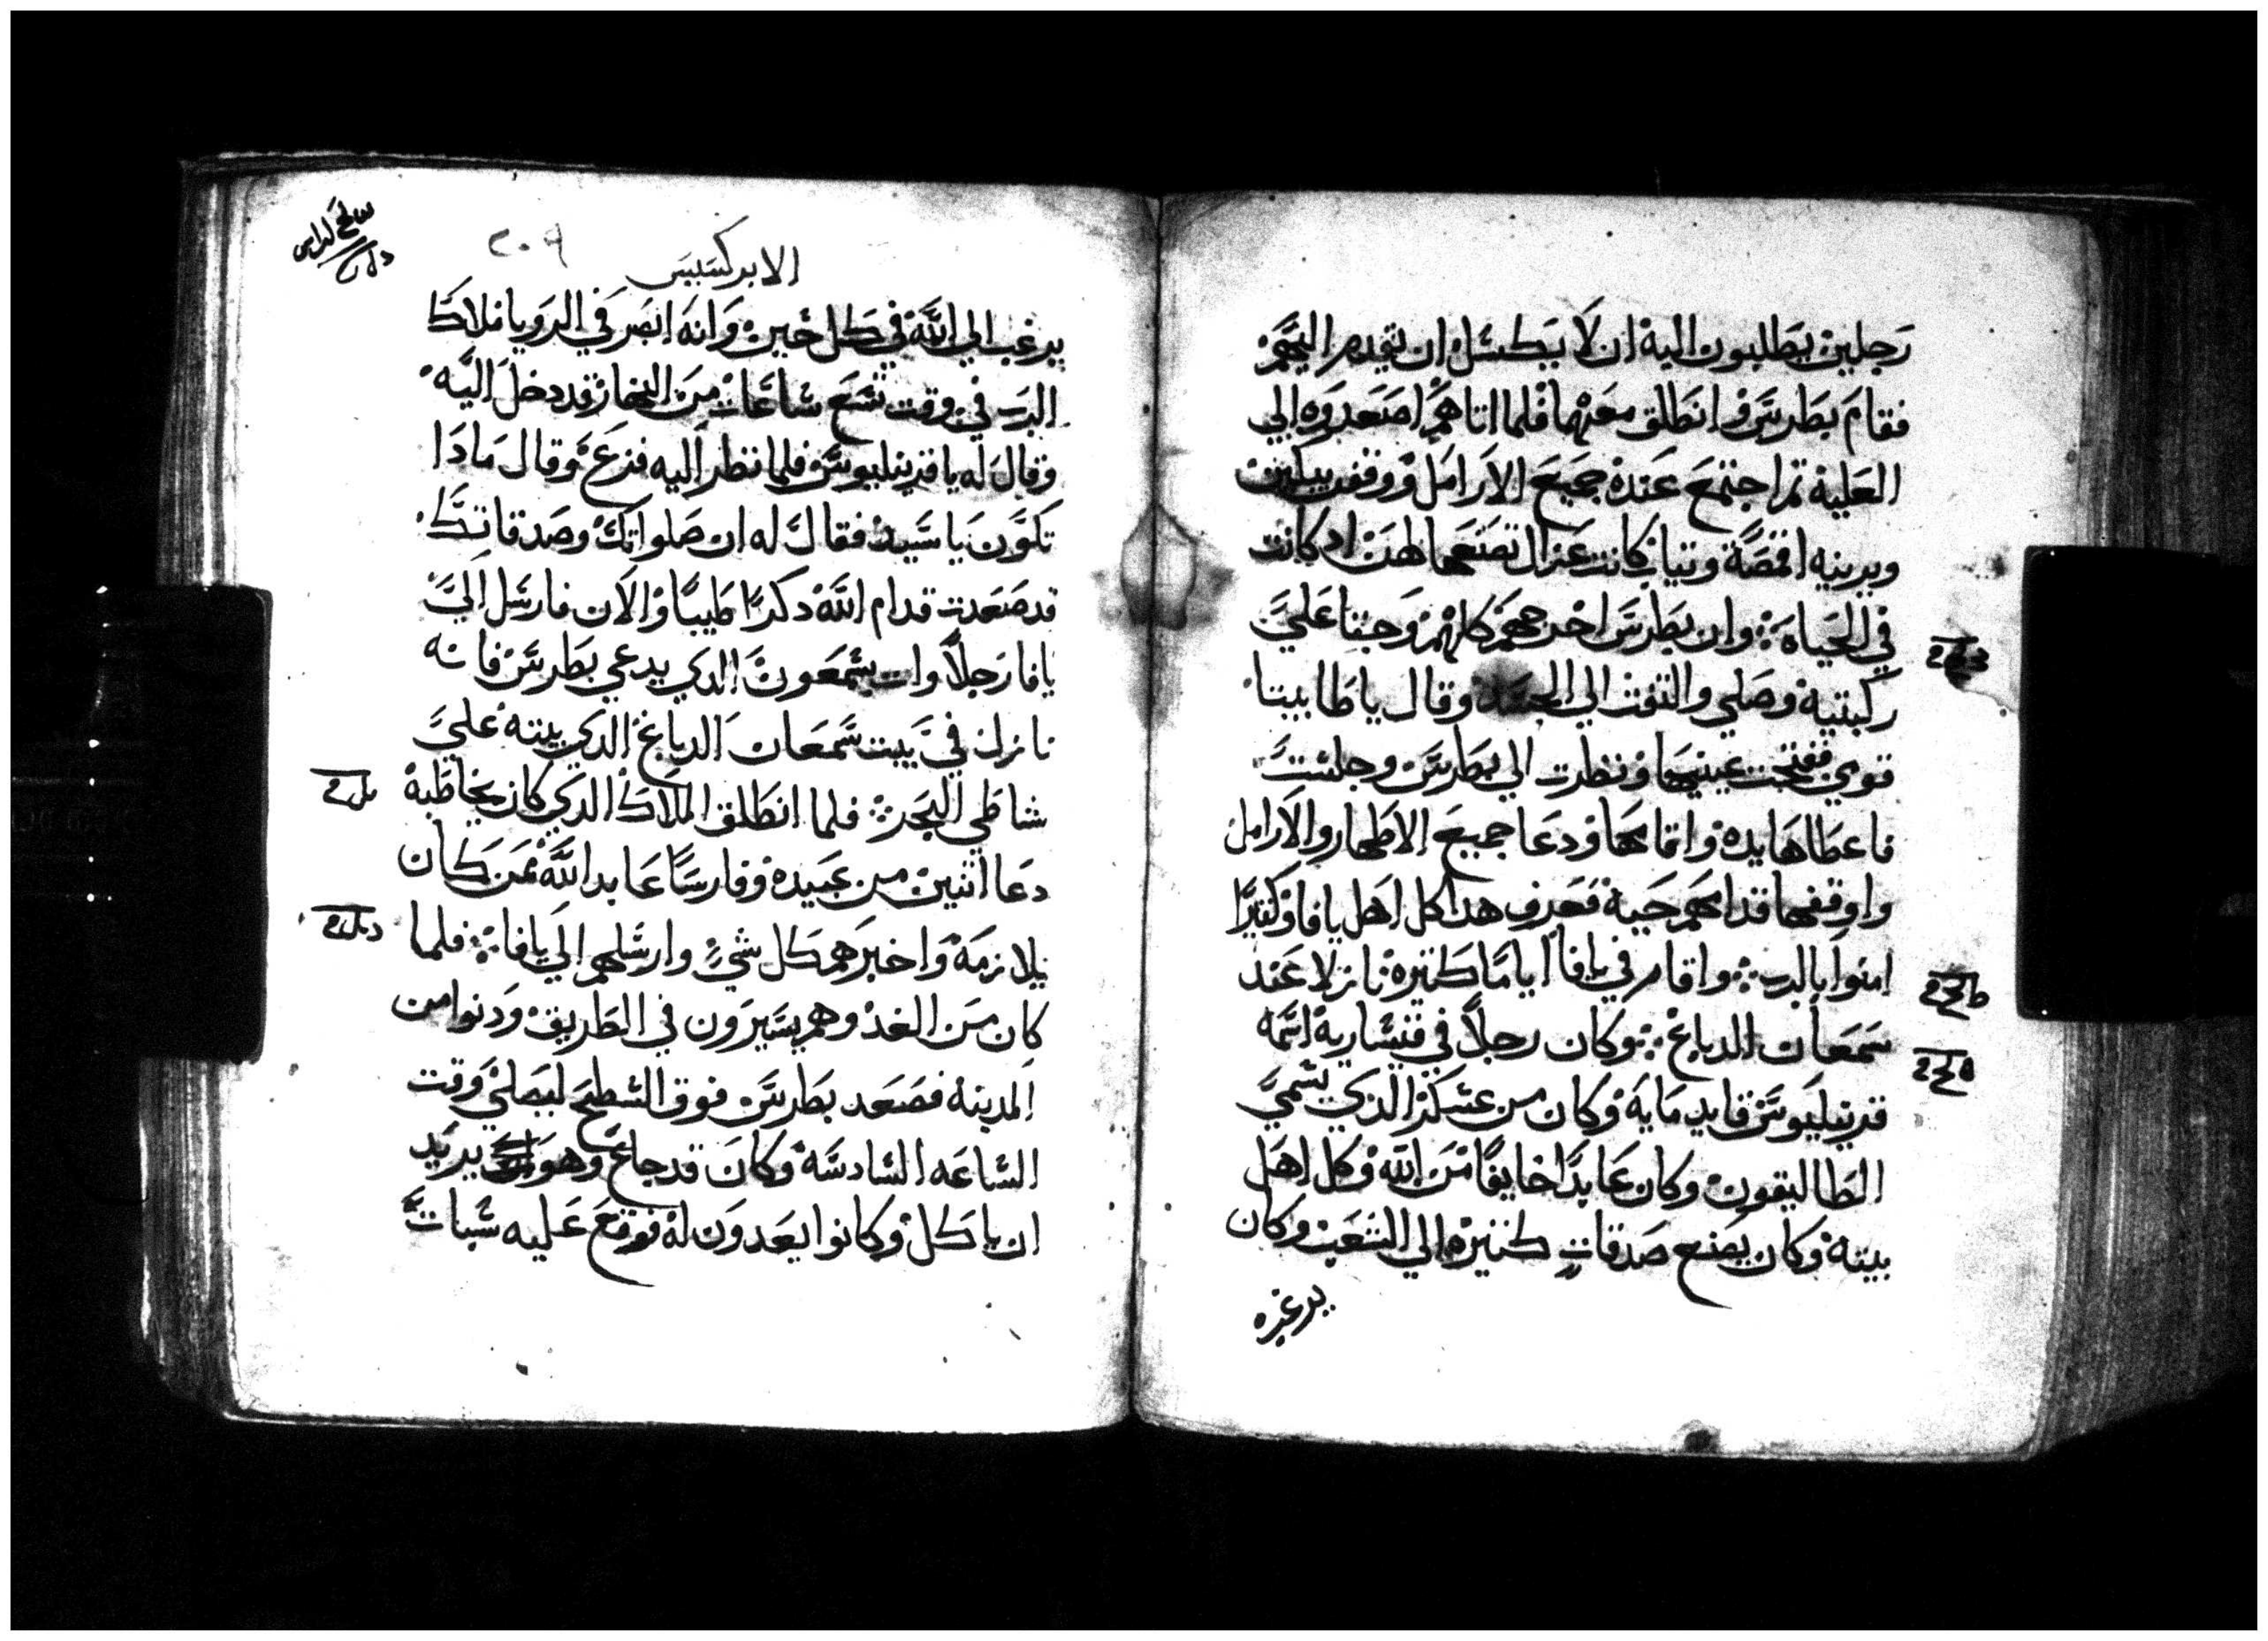 رجلين يطلبون اليه ان لا يكسل ان يقدم اليهم
فقام بطرس وانطلق معهما فلما اتاهم اصعدوه الي
العلية ثم اجتمع عنده جميع الارامل ووقفن يبكين
ويرينه اقمصة وتياب كانت غزال تصنعها لهن اد كانت
في الحياه وان بطرس اخرجهم كلهم وجتا علي
ركبتيه وصلي والتفت الي الجسد وقال ياطابيتا
قومي ففتحت عينيها ونظرت الي بطرس وجلست
فاعطاها يده واقامها ودعا جميع الاطهار والارامل
واوقفها قدامهم حية فعرف هدا كل اهل يافا وكتيرا
امنوا بالرب واقام في يافا اياما كتيره نازلا عند
سمعان الدباغ وكان رجلا في قيسارية اسمه
قرنيليوس قايد مايه وكان من عسكر الدي يسمي
الطاليقون وكان عابدا خايفا من الله وكل اهل
بيته وكان يصنع صدقات كتيره الي الشعب وكان
يرغب
الابركسيس
٢٠٩
يرغب الي الله في كل حين وانه ابصر في الرويا ملاك
الرب في وقت تسع ساعات من النهار قد دخل اليه
وقال له يا قرنيليوس فلما نظر اليه فزع وقال مادا
تكون يا سيد فقال له ان صلواتك وصدقاتك
قد صعدت قدام الله دكرا طيبا والان فارسل الي
يافا رجلا وات بسمعون الدي يدعي بطرس فانه
نازل في بيت سمعان الدباغ الدي بيته علي
شاطي البحر فلما انطلق الملاك الدي كان يخاطبه
دعا اتنين من عبيده وفارسا عابد الله ممن كان
يلازمه واخبرهم كل شي وارسلهم الي يافا فلما
كان من الغد وهم يسيرون في الطريق ودنوا من
المدينه فصعد بطرس فوق السطح ليصلي وقت
الساعه السادسة وكان قد جاع وهو يريد
ان ياكل وكانوا يعدون له فوقع عليه سبات